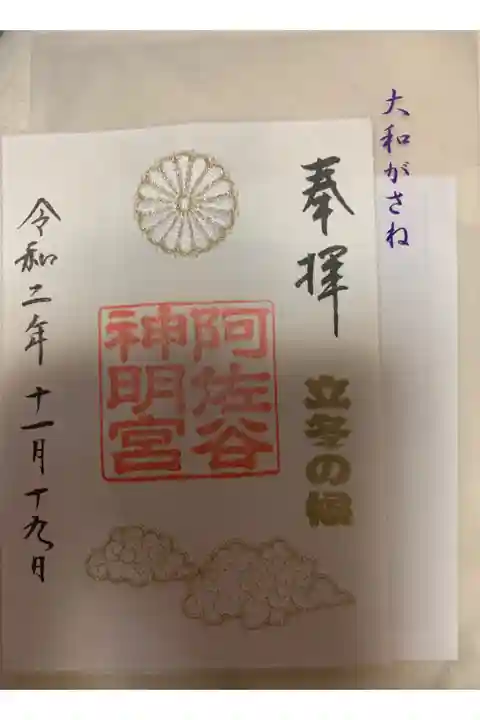 大和がさね
奉拝
立冬の候
阿佐谷
神明宮
令和二年十一月十九日